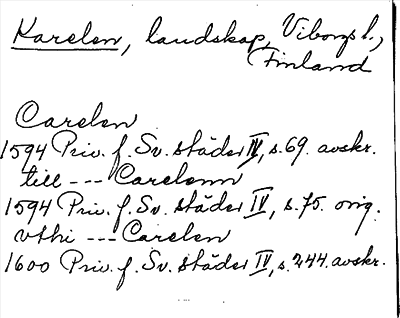 Karelen, landskap, Viborgs l.,
Finland
Carelen
1594 Priv. f. Sv. städer IV, s. 69. avskr.
till --- Carelenn
1594 Priv. f. Sv. städer IV, s. 75. orig.
vthi --- Carelen
1600 Priv. f. Sv. städer IV, s. 244. avskr.